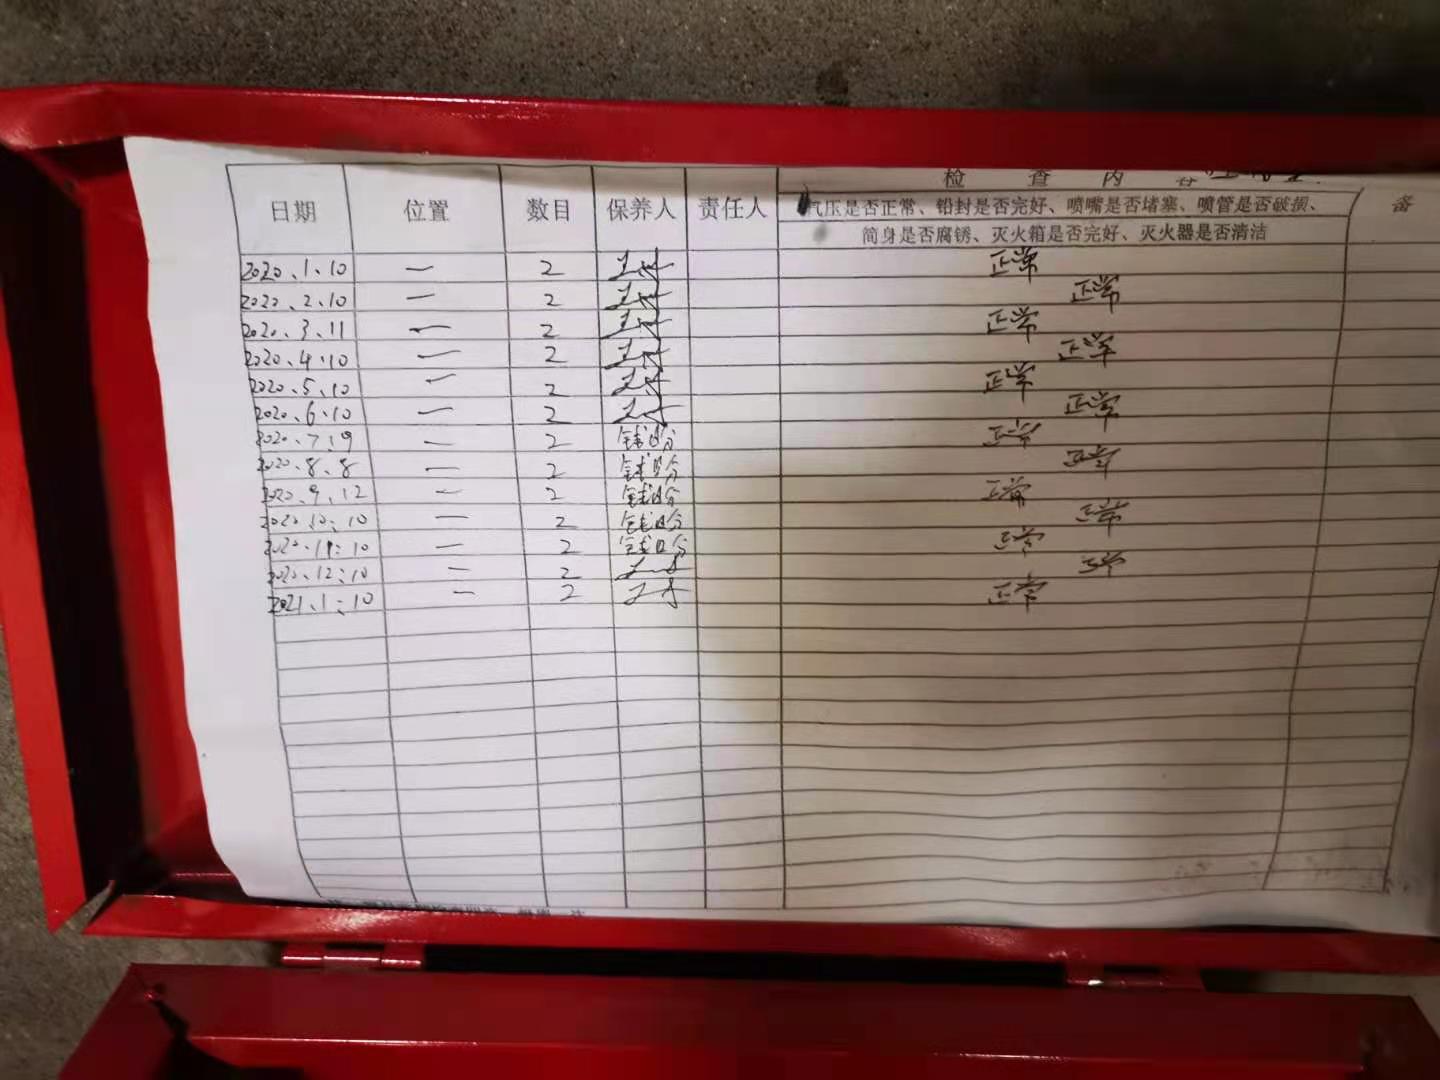 检 查 内 容
日期 位置 数目 保养人 责任人 气压是否正常、铅封是否完好、喷嘴是否堵塞、喷管是否破损、 备
筒身是否腐锈、灭火箱是否完好、灭火器是否清洁
2020、1、10 一 2 正常
2020、2、10 一 2 正常
2020、3、11 一 2 正常
2020、4、10 一 2 正常
2020、5、10 一 2 正常
2020、6、10 一 2 正常
2020、7、9 一 2 正常
2020、8、8 一 2 正常
2020、9、12 一 2 正常
2020、10、10 一 2 正常
2020、11、10 一 2 正常
2020、12、10 一 2 正常
2021、1、10 一 2 正常